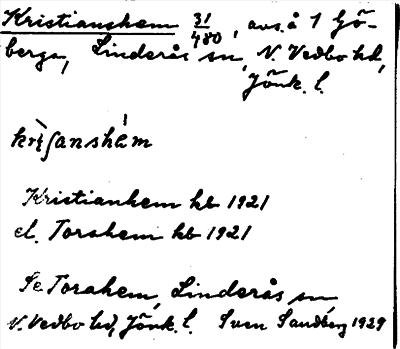 Kristianshem 31/480, avs. å 1 Gö-
berga, Linderås sn, N. Vedbo hd,
Jönk. l.
krìʃanshém
Kristianhem kb 1921
el. Torahem kb 1921
Se Torahem, Linderås sn
N. Vedbo hd, Jönk. l. Sven Sandberg 1929